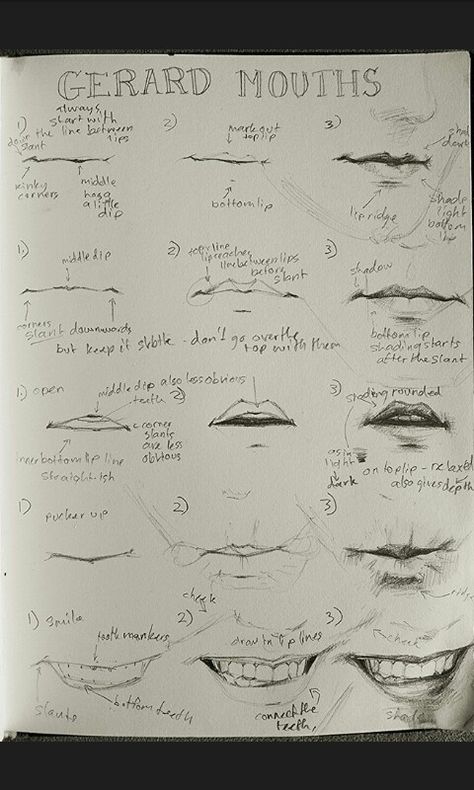 GERARD MOUTHS
always
start with
the line between
lips
1)
down the
slant
kinky
corners
middle
has a
a little
dip
2)
mark out
top lip
bottom lip
3)
lip ridge
shade
light
bottom
1.)
middle dip
corners
slant downwards
but keep it subtle - don't go over the
top with them
2)
top line
lip reaches
line between lips
before
slant
3)
shadow
bottom lip
shading starts
after the slant
1.) open
middle dip also less obvious
teeth
corner
slants
are less
obvious
inner bottom lip line
straight-ish
2)
3)
shading rounded
as in
light
dark
on top lip - relaxed
also gives depth
1)
pucker up
2)
3)
ridge
1) smile
tooth markers
bottom teeth
slants
2)
cheek
draw in lip lines
connect the
teeth,
3)
cheek
shade